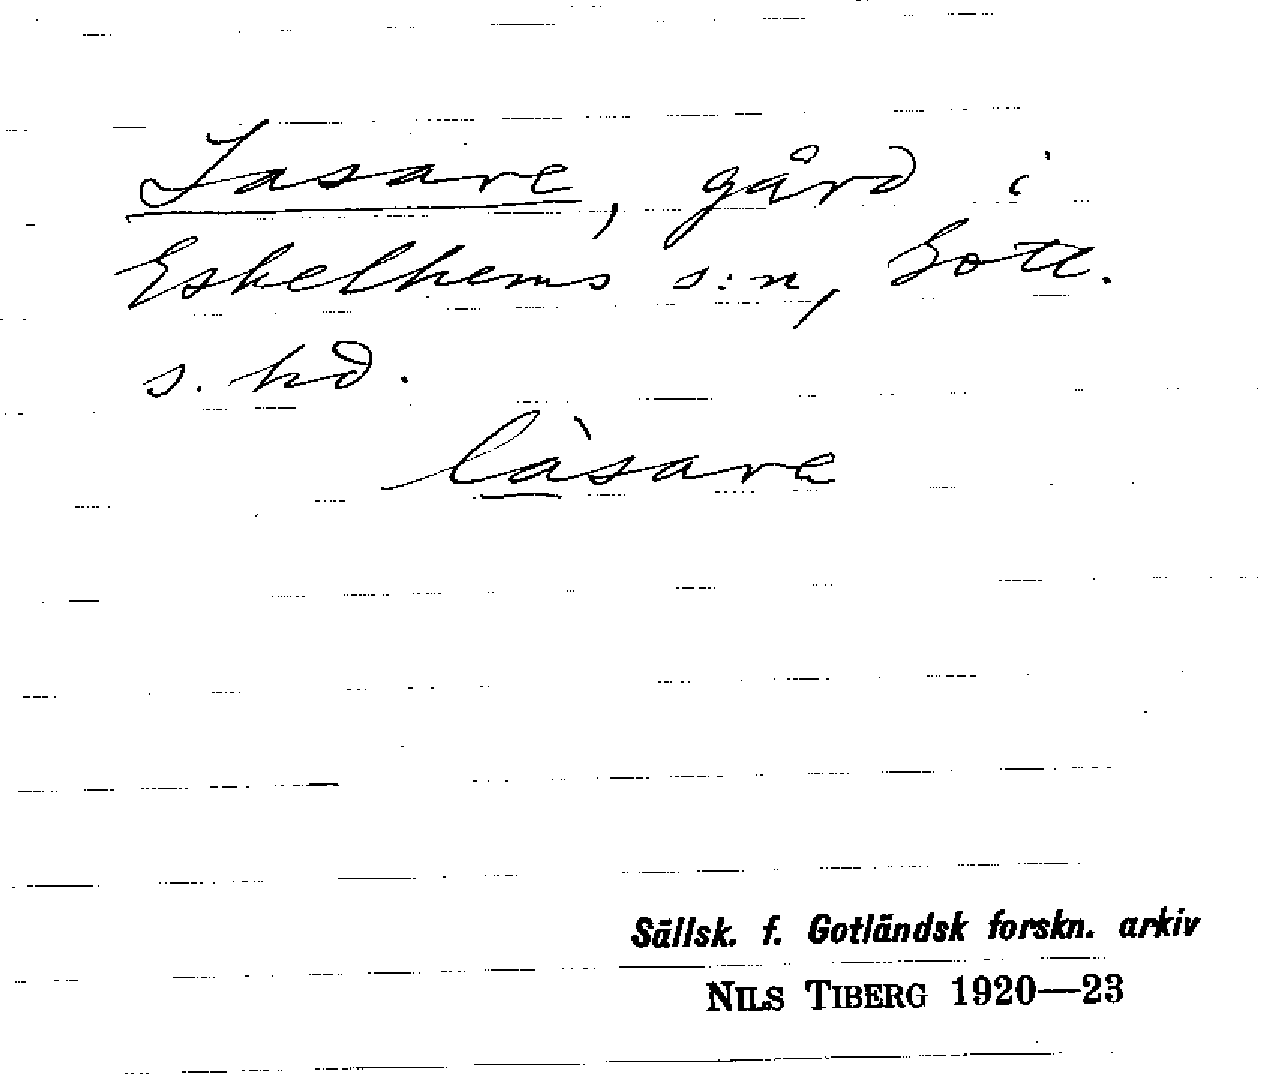 Lasare, gård i
Eskelhems s:n, Gotl.
s. hd.
làsare
Sällsk. f. Gotländsk forskn. arkiv
NILS TIBERG 1920—23